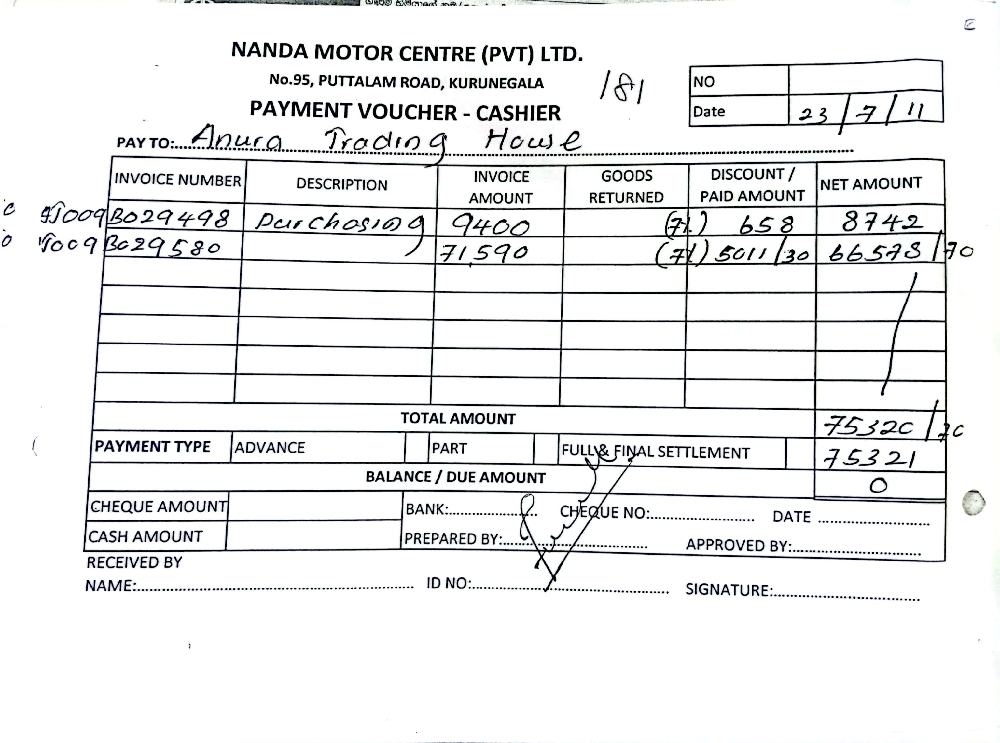 NANDA MOTOR CENTRE (PVT) LTD.
No.95, PUTTALAM ROAD, KURUNEGALA
181
PAYMENT VOUCHER - CASHIER
NO
Date 23/7/11
PAY TO:... Anura Trading House
INVOICE NUMBER DESCRIPTION INVOICE AMOUNT GOODS RETURNED DISCOUNT / PAID AMOUNT NET AMOUNT
B029498 purchasing 9400 (7%) 658 8742
B029580 71,590 (7%) 5011/30 66578/70
TOTAL AMOUNT 75320/70
PAYMENT TYPE ADVANCE PART FULL & FINAL SETTLEMENT 75321
BALANCE / DUE AMOUNT 0
CHEQUE AMOUNT BANK:................ CHEQUE NO:.................... DATE ....................
CASH AMOUNT PREPARED BY:........................ APPROVED BY:........................
RECEIVED BY
NAME:.................................................... ID NO:..................................... SIGNATURE:............................